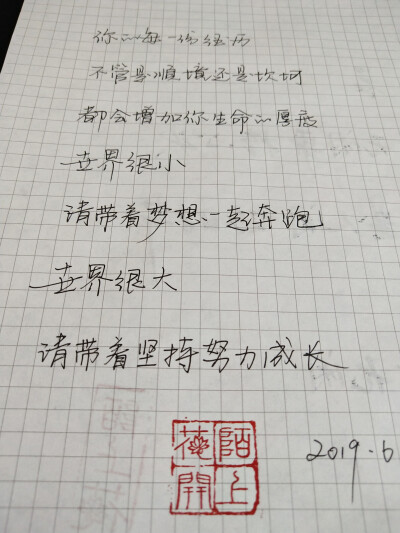 你的每一份经历
不管是顺境还是坎坷
都会增加你生命的厚度
世界很小
请带着梦想一起奔跑
世界很大
请带着坚持努力成长
陌上花開
2019.6